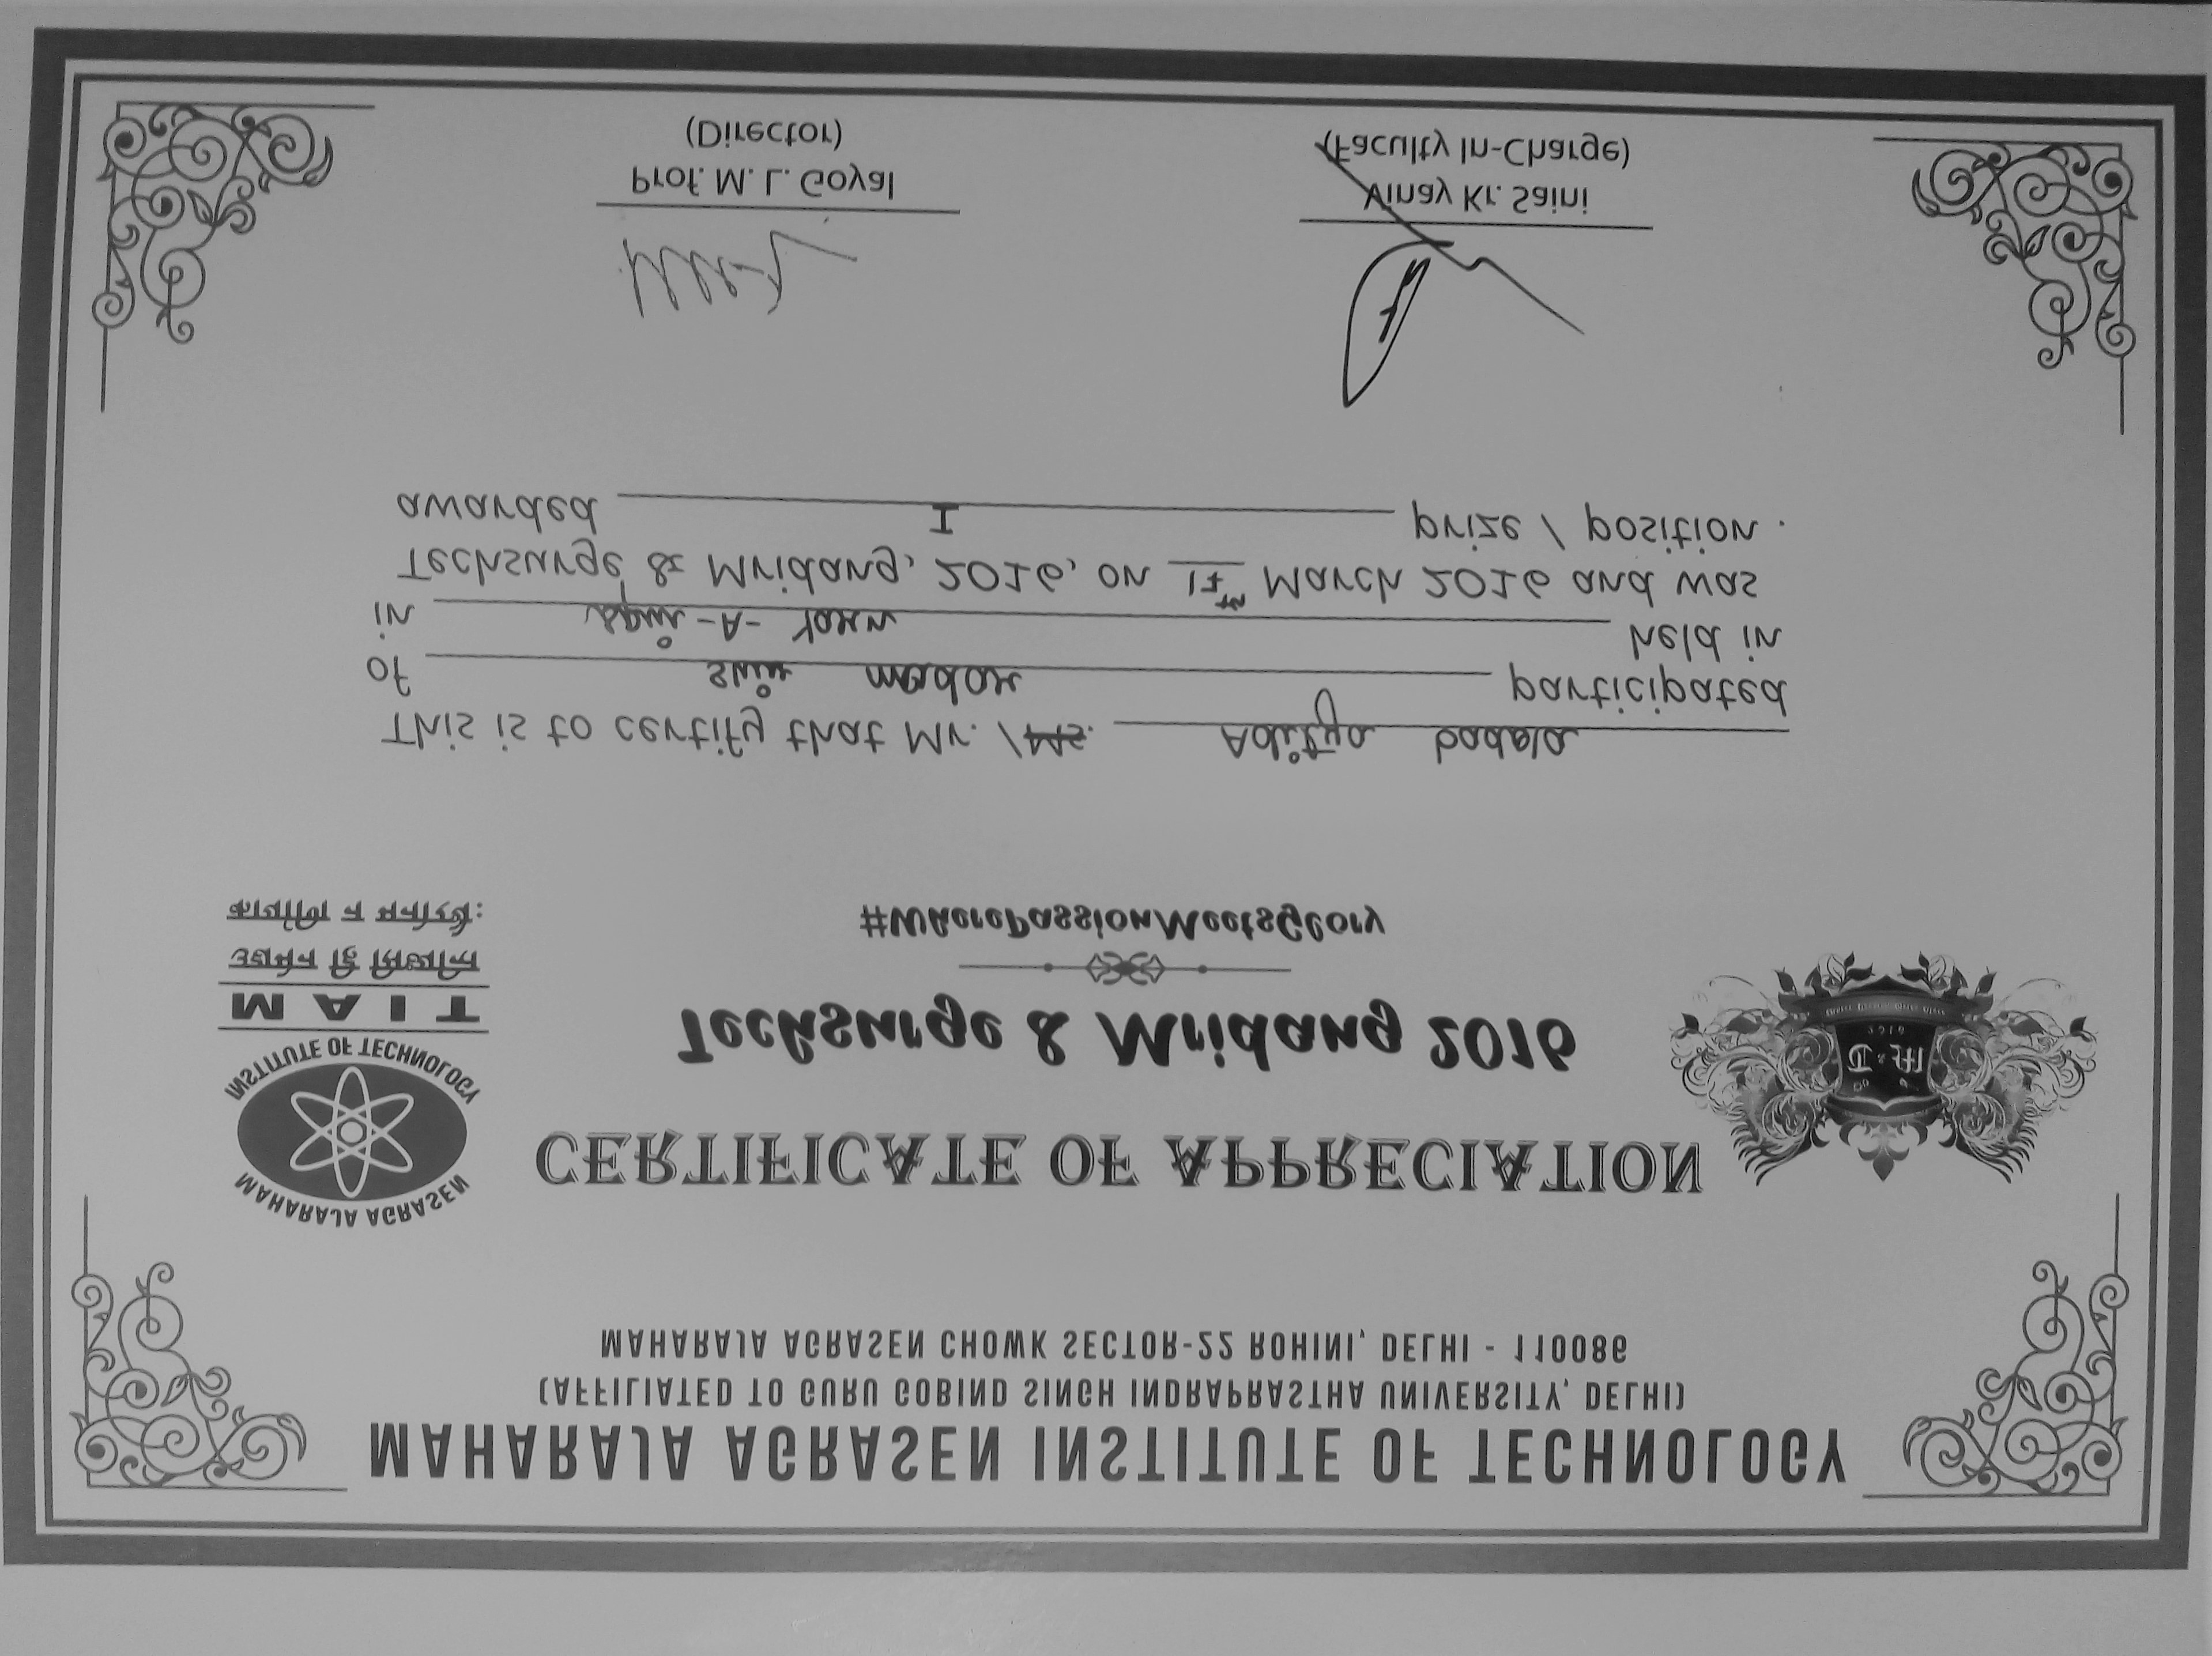 MAHARAJA AGRASEN INSTITUTE OF TECHNOLOGY
(AFFILIATED TO GURU GOBIND SINGH INDRAPRASTHA UNIVERSITY, DELHI)
MAHARAJA AGRASEN CHOWK SECTOR-22 ROHINI, DELHI - 110086
MAHARAJA AGRASEN
INSTITUTE OF TECHNOLOGY
MAIT
CERTIFICATE OF APPRECIATION
Techsurge & Mridang 2016
#WherePassionMeetsGlory
T & M
2016
This is to certify that Mr. / Ms. Aditya badola
of Shiv modar participated
in Spin-A-Yarn held in
Techsurge & Mridang, 2016, on 17th March 2016 and was
awarded I prize / position .
Prof. M. L. Goyal
(Director)
Vinay Kr. Saini
(Faculty In-Charge)